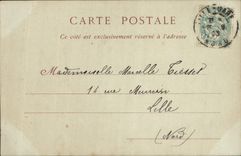 CARTE POSTALE
Ce côté est exclusivement réservé à l'adresse
Mademoiselle Marcelle
14 rue
Lille
(Nord)